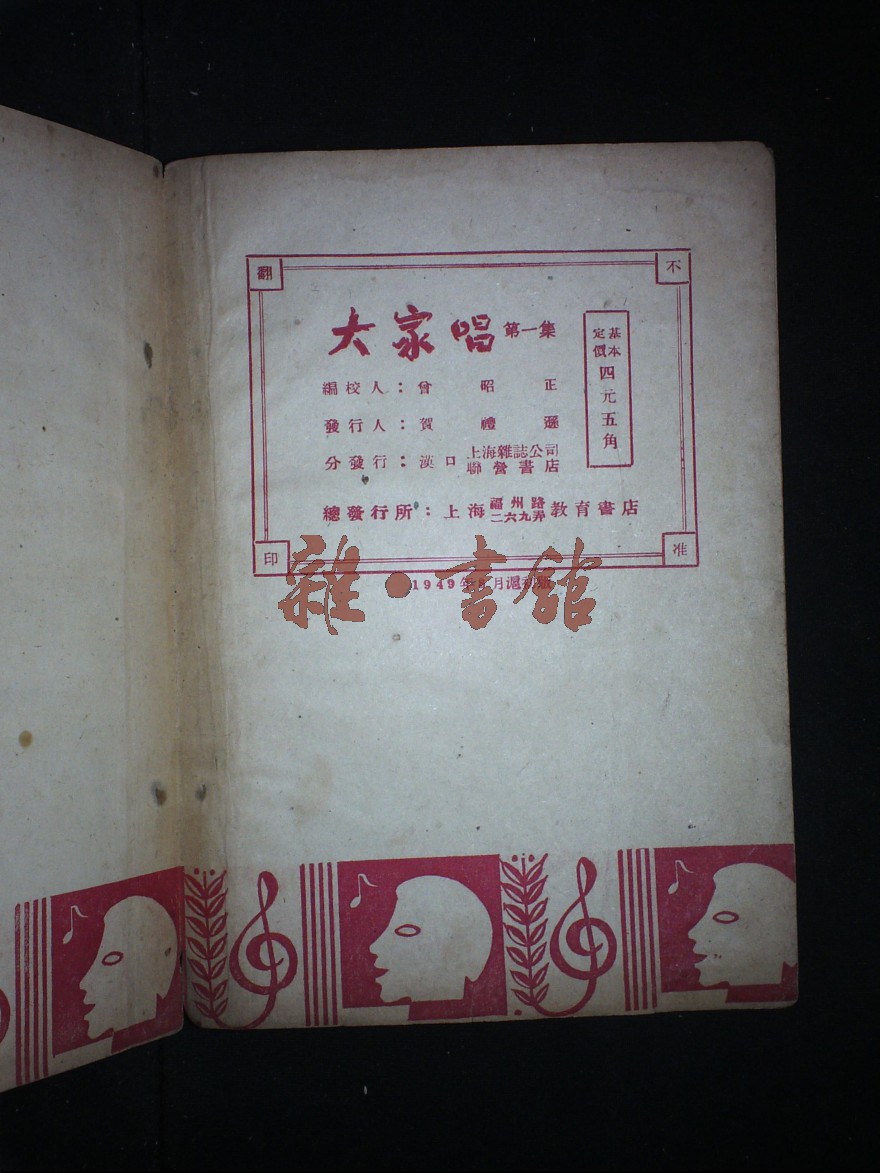 不准翻印
大家唱 第一集
基本定價四元五角
編校人：曾昭正
發行人：賀禮遜
分發行：漢口 上海雜誌公司
聯營書店
總發行所：上海 福州路二六九弄 教育書店
1949年8月滬初版
雜·書館